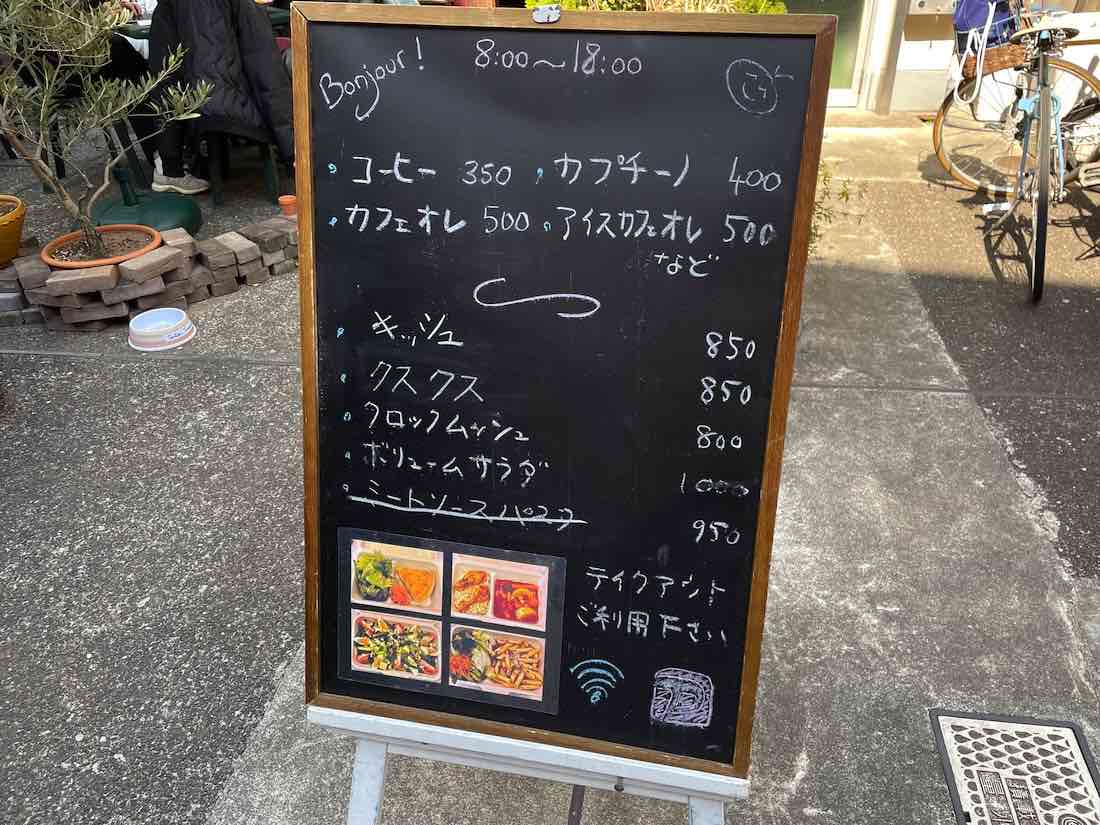 Bonjour! 8:00〜18:00
コーヒー 350 カプチーノ 400
カフェオレ 500 アイスカフェオレ 500
など
キッシュ 850
クスクス 850
クロックムッシュ 800
ボリュームサラダ 1000
ミートソースパスタ 950
テイクアウト
ご利用下さい